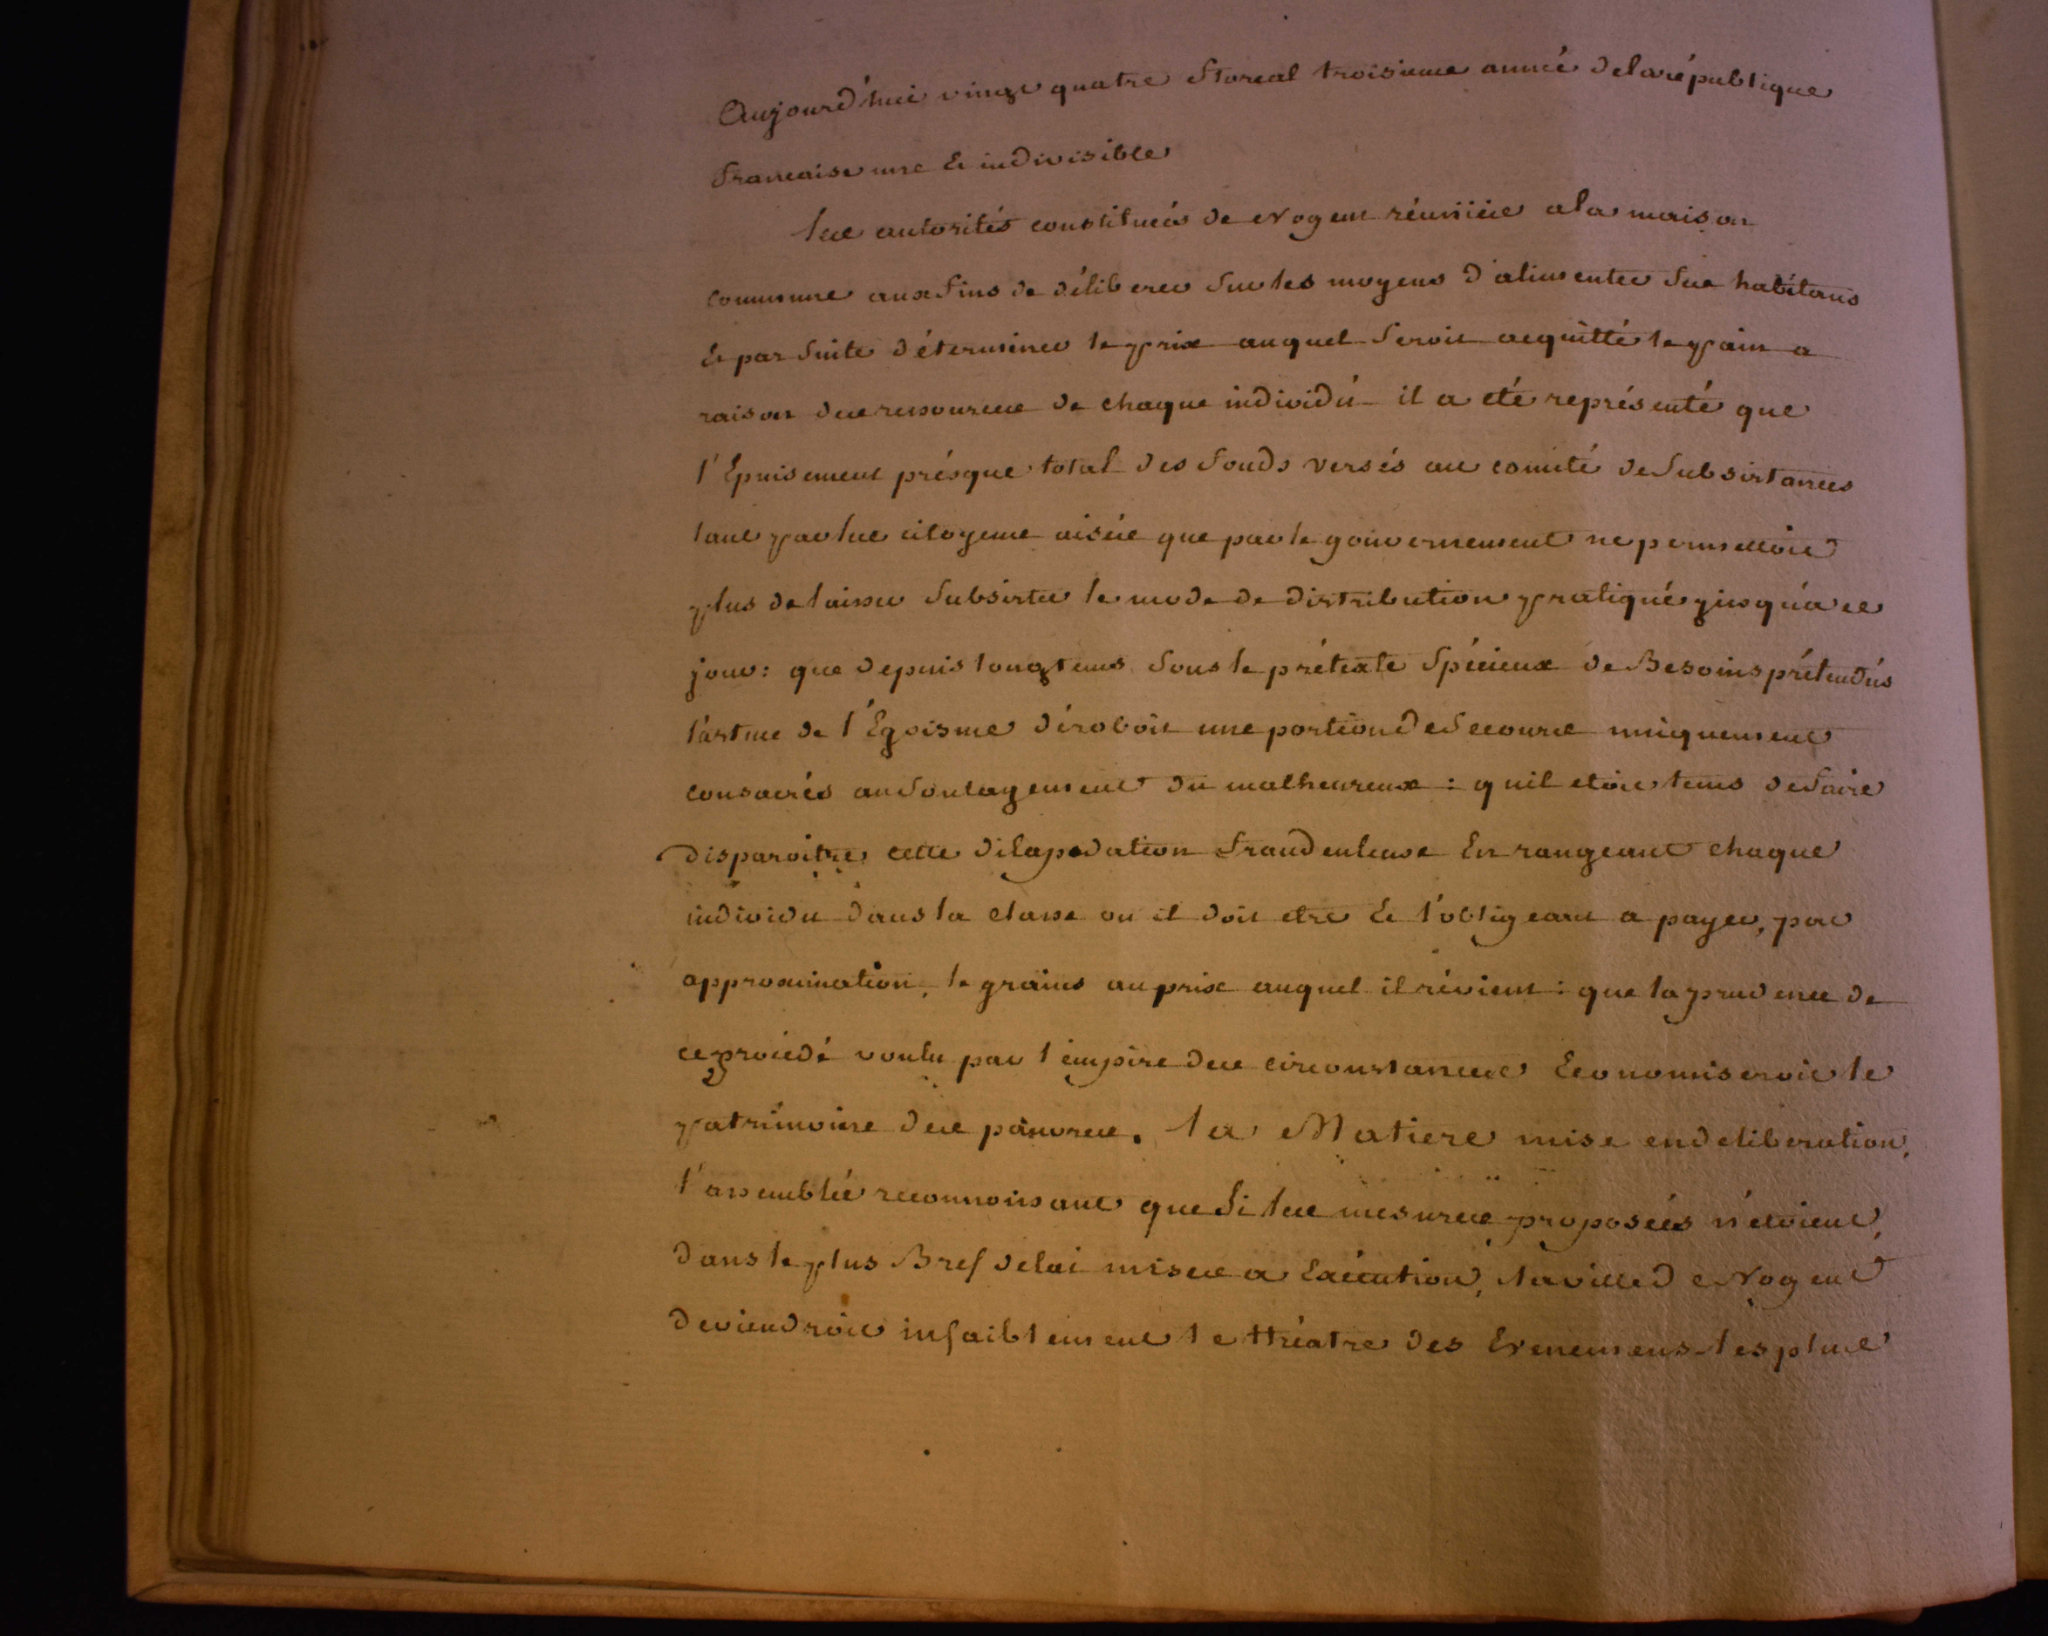 Aujourd'hui vingt quatre floreal troisieme année de la république
francaise une et indivisible
les autorités constitueés de Nogent réuniées a la maison
commune aux fins de déliberer sur les moyens d'alimenter ses habitans
et par suite déterminer le prix auquel seroit acquitté le pain a
raison des ressources de chaque individú il a eté représenté que
l'Epuisement présque total des fonds versés au comité de subsistances
tant par les citoyens aisées que par le gouvernement ne permettoit
plus de laisser subsister le mode de distribution pratiqué jusqu'a ce
jour: que depuis longtems sous le prétexte spécieux de Besoins prétendús
l'astuce de l'Egoisme déroboit une portion de secours uniquement
consacrés au soulagement du malheureux : quil etoit tems de faire
disparoitre cette dilapidation fraudeuleuse En rangeant chaque
individu dans la classe ou il doit etre et l'obligeant a payer, par
approximation, le grains au prix auquel il révient : que la prudence de
ce procédé voulu par l'empire des circonstances Economiseroit le
patrimoine des pauvres. la Matiere mise en deliberation,
l'assemblée reconnoissant que si les mesures proposeés n'etoient,
dans le plus Bref delai mises a Exécution, la ville de Nogent
deviendroit infailblement le théatre des Evenemens les plus